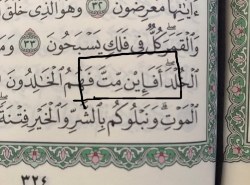 ءَايَٰتِهَا مُعۡرِضُونَ ٣٢ وَهُوَ ٱلَّذِي خَلَقَ
وَٱلۡقَمَرَۖ كُلّٞ فِي فَلَكٖ يَسۡبَحُونَ ٣٣ وَمَا
ٱلۡخُلۡدَۖ أَفَإِيْن مِّتَّ فَهُمُ ٱلۡخَٰلِدُونَ
ٱلۡمَوۡتِۗ وَنَبۡلُوكُم بِٱلشَّرِّ وَٱلۡخَيۡرِ فِتۡنَةٗ
٣٢٤